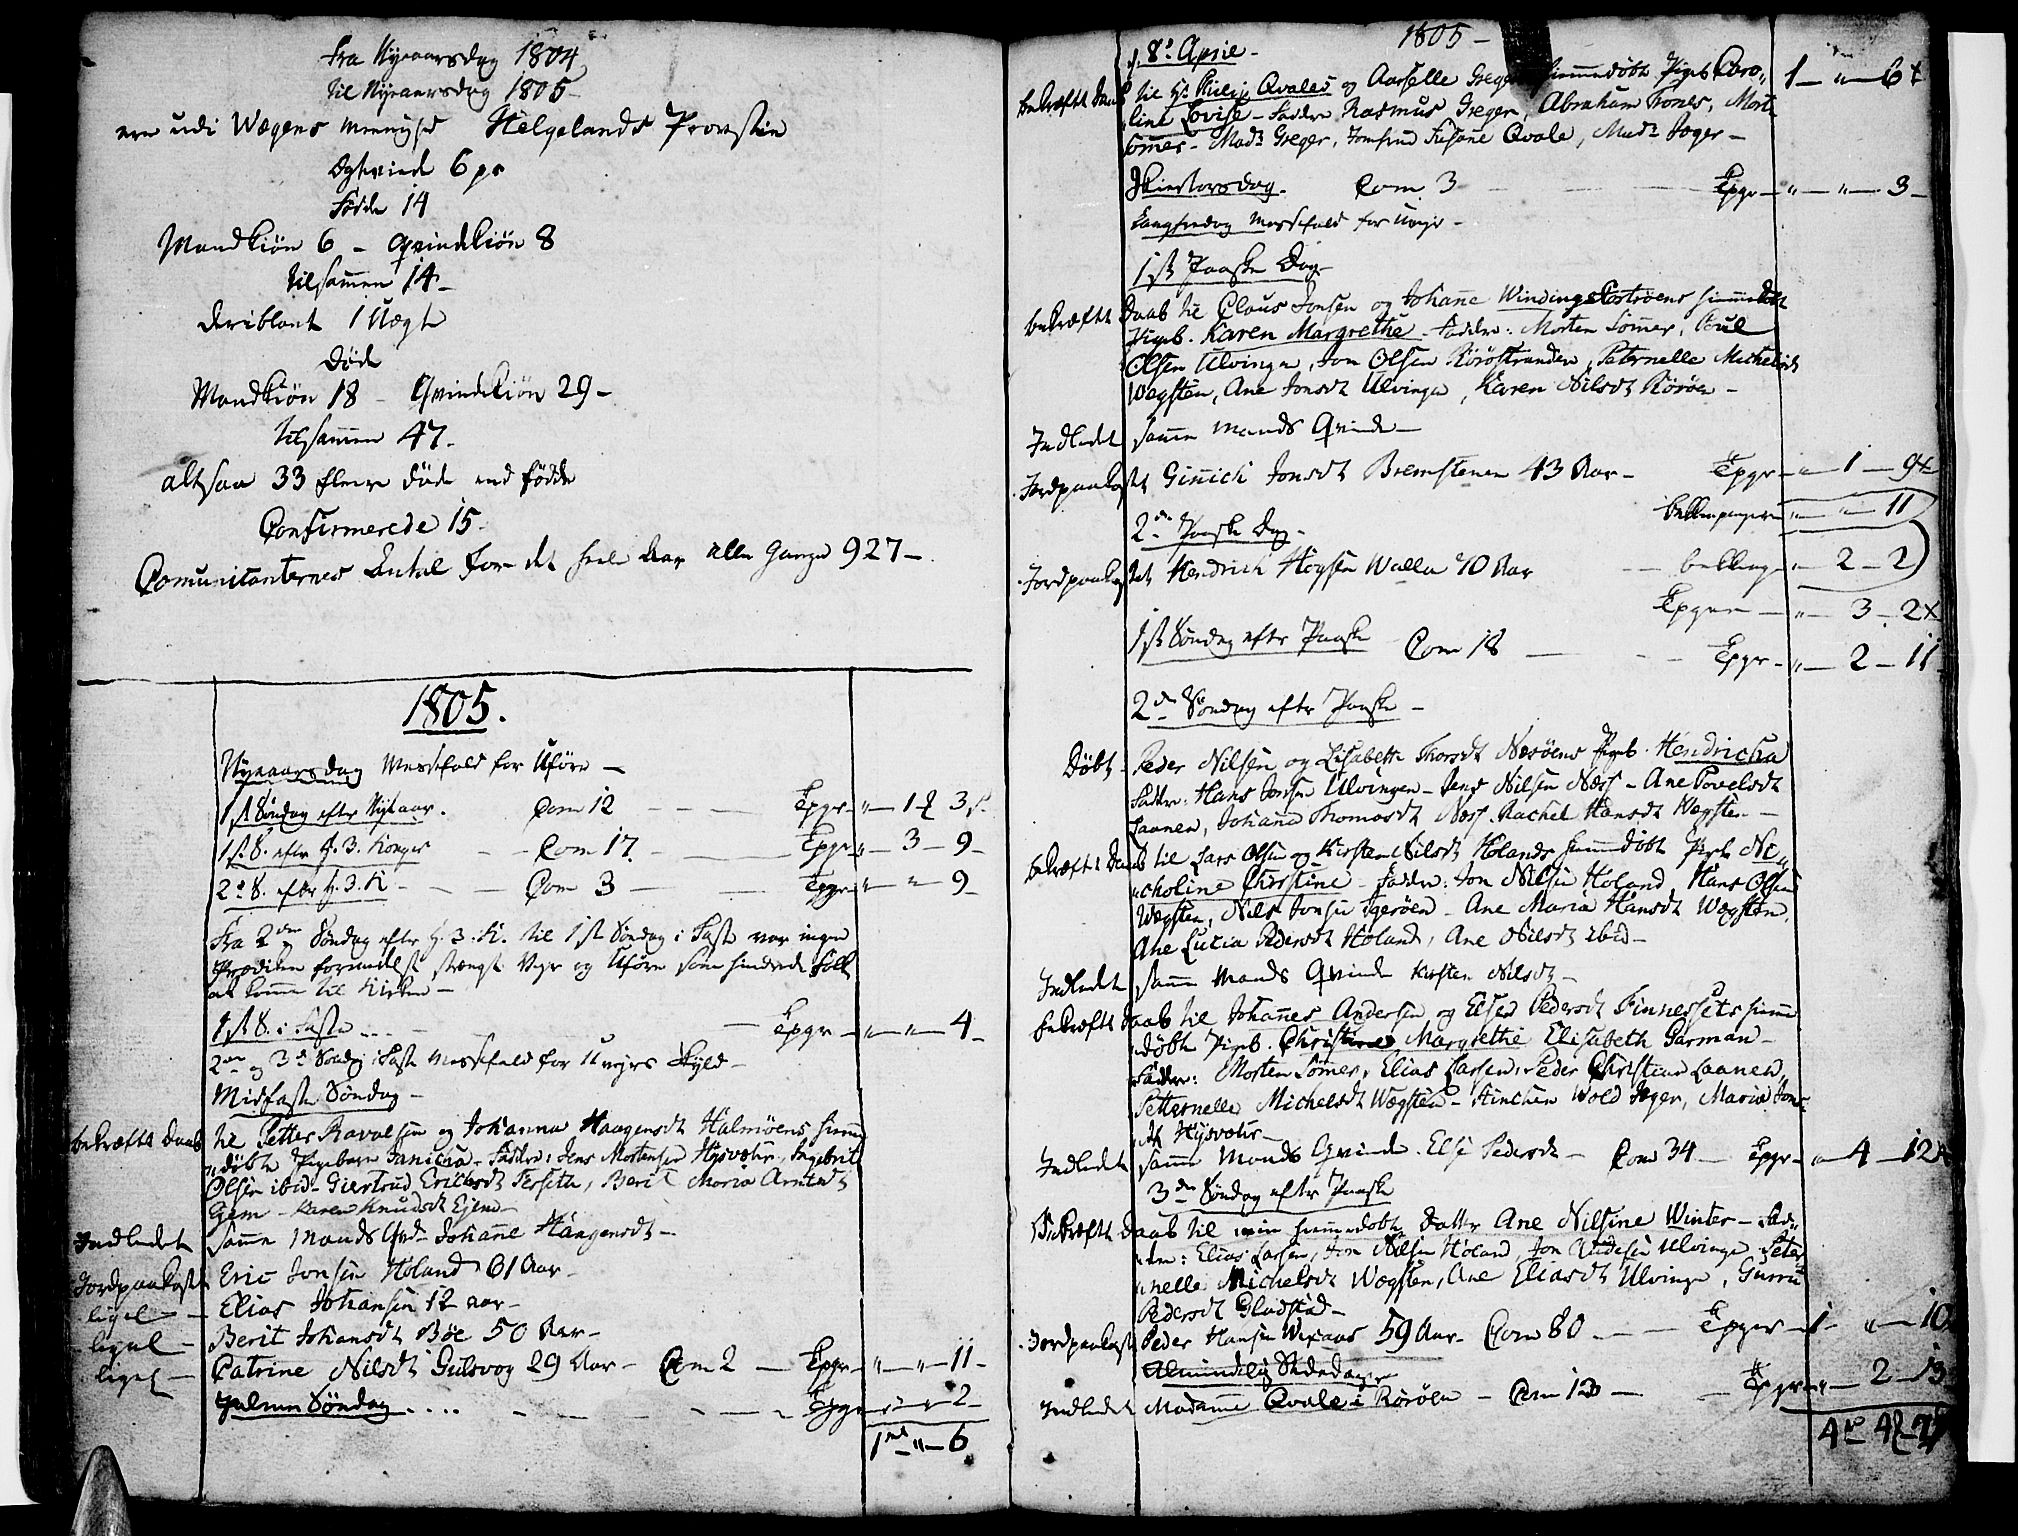 Fra Nyeaarsdag 1804
til Nyeaarsdag 1805
ere udi Wægens Menighed Helgelands Provstie
Egteviede 6 pr
Fødde 14
Mandkiøn 6 – Qvindekiøn 8
tilsamen 14 –
deriblant 1 Uægte
Døde
Mandkiøn 18 – Qvindekiøn 29 –
tilsamen 47 –
altsaa 33 flere døde end fødde
Confirmerede 15 –
Comunicanternes Antal for det heele Aar alle Gange 927 –
1805.
Nyeaarsdag Messefald for Uføre –
1ste Søndag efter Nyeaar. Com 12 – – – Expgr – " – 1 – 3
1st S. efter H. 3. Konger – – Com 17 – – Expgr – " – 3 – 9 –
2d S. efter H. 3. K – – – Com 3 – – – Expgr – " – " – 9 –
Fra 2den Søndag efter H. 3. K. til 1st Søndag i Faste var ingen
Prædiken formedelst strengt Veyr og Uføre som hindrede Folk
at komme til Kirken –
1st S. i Faste – – – Expgr – " – " – 4 –
2den og 3de Søndag i Faste Messefald for Uveyrs Skyld –
Midfaste Søndag –
bekræftet Daab til Petter Ravalsen og Johanna Haagensdt Halmøens hiemme
døbte Pigebarn Janicha – Faddre: Jens Mortensen Hysvætr, Ingebrit
Olsen ibid – Giertrud Erichsdt Fersette, Berit Maria Arntsdt
Gjem – Karen Knudsdt Ejem –
Indledet samme Mands Qvd – Johanne Haagensdt –
Jordpaakastet Eric Jonsen Holand 61 Aar –
ligel – Elias Johansen 12 aar –
ligel – Berit Johansdt Bøe 50 Aar –
ligel – Catrine Nilsdt Gulsvog 29 Aar – Com 2 – Expgr – " – " – 11 –
Palmesøndag . . . . – – – – Expgr – " – " – 2 –
1 – " – 6
1805 –
d. 8de Aprie –
bekræftet Daab til Hr Philip Qvales og Aarselle Greger hiemmedøbte Pigeb Caro 1 – " – 6
line Lovise – Faddre Rasmus Greger, Abraham Trones, Mort
Sømer – Madm Greger, Jomfrue Susane Qvale, Madm Jæger –
Skiertorsdag. Com 3 – – Expgr – " – " – 3 –
Langfredag Messefald for Uveyr –
1st Paaske Dag –
bekræftet Daab til Claus Jonsen og Johanne Windings hiemmedøbt
Pigeb. Karen Margrethe – Faddre: Morten Sømer, Poul
Olsen Ulvingen, Jon Olsen Rørøstranden, Peternelle Michelsdt
Wægsten, Ane Jonsdt Ulvingen, Karen Nilsdt Rørøen –
Indledet samme Mands Qvinde –
Jordpaakastet Ginnich Jonsdt Bremstenen 43 Aar – Expgr – " – 1 – 9
2den Paaske Dag – " – " – 11
Jordpaakastet Hendrich Høysen Walla 70 Aar – " – 2 – 2
Expgr – " – 3 – 2
1st Søndag efter Paaske Com 18 – – – Expgr – " – 2 – 11
2den Søndag efter Paaske –
Døbt – Peder Nilsen og Lisabetta Thorsdt Næsøens Pigeb. Hendricha
Faddre: Hans Jonsen Ulvingen – Jens Nilsen Næss – Ane Povelsdt
Laanen, Johana Thomasdt Næss. Rachel Hansdt Wægsten –
bekræftet Daab til Lars Olsen og Kirsten Nilsdt Holands hiemmedøbte Pigeb Ni
choline Christine – Faddre: Jon Nilsen Holand, Hans Olsen
Wægsten, Nils Jonsen Igerøen – Ane Maria Hansdt Wægsten,
Ane Lucia Pedersdt Holand, Ane Nilsdt ibid –
Indledet samme Mands Qvinde Kirsten Nilsdt –
bekræftet Daab til Johannes Andersen og Elsen Pedersdt Finnessets hiemme
døbte Pigeb. Christine Margrethe Elisabeth Garman –
Faddre: Morten Sømer, Elias Larsen, Peder Christian Laanen,
Petternelle Michelsdt Wægsten – Hinchen Wold Jæger, Maria Jons
dt Hysvætr –
Indledet samme Mands Qvinde. Else Pedersdt – Com 34 – Expgr – " – 4 – 12
3de Søndag efter Paaske
Bekræftet Daab til min hiemmedøbte Datter Ane Nilsine Winter – Fad
dre: Elias Larsen, Jon Nilsen Holand, Jon Andersen Ulvinge, Peter
nelle Michelsdt Wægsten, Ane Eliasdt Ulvinge, Gurru
Pedersdt Gladstad –
Jordpaakastet Peder Hansen Wexaas 59 Aar – Com 80 – – – Expgr – 1 – " – 10
Almindelig Bededag
Indledet Madamme Qvale i Rørøen – Com 13 – – Expgr – " – 2 – 13